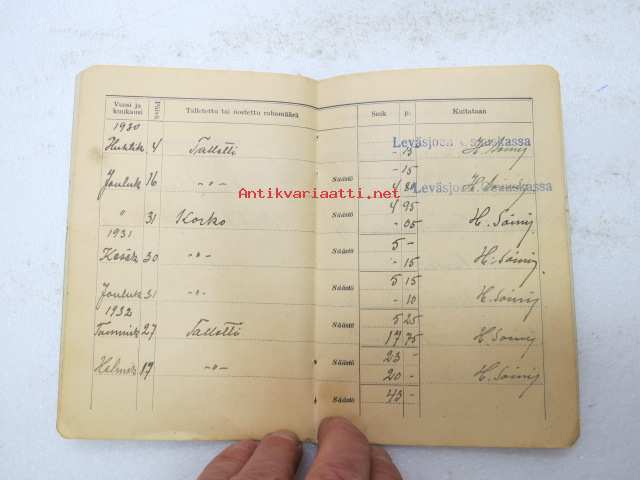 Vuosi ja kuukausi Päivä Talletettu tai nostettu rahamäärä Smk p. Kuitataan
1930
Leväsjoen Osuuskassa
Huhtik 4 Talletti - 15 H. Soinij
Säästö - 15
Jouluk 16 -"- 4 80 H. Soinij
Leväsjoen Osuuskassa
Antikvariaatti.net
Säästö 4 95
" 31 Korko - 05 H. Soinij
1931
Säästö 5 -
Kesäk 30 -"- - 15 H. Soinij
Säästö 5 15
Jouluk 31 -"- - 10 H. Soinij
1932
Säästö 5 25
Tammik 27 Talletti 17 75 H. Soinij
Säästö 23 -
Helmik 17 -"- 20 - H. Soinij
Säästö 43 -